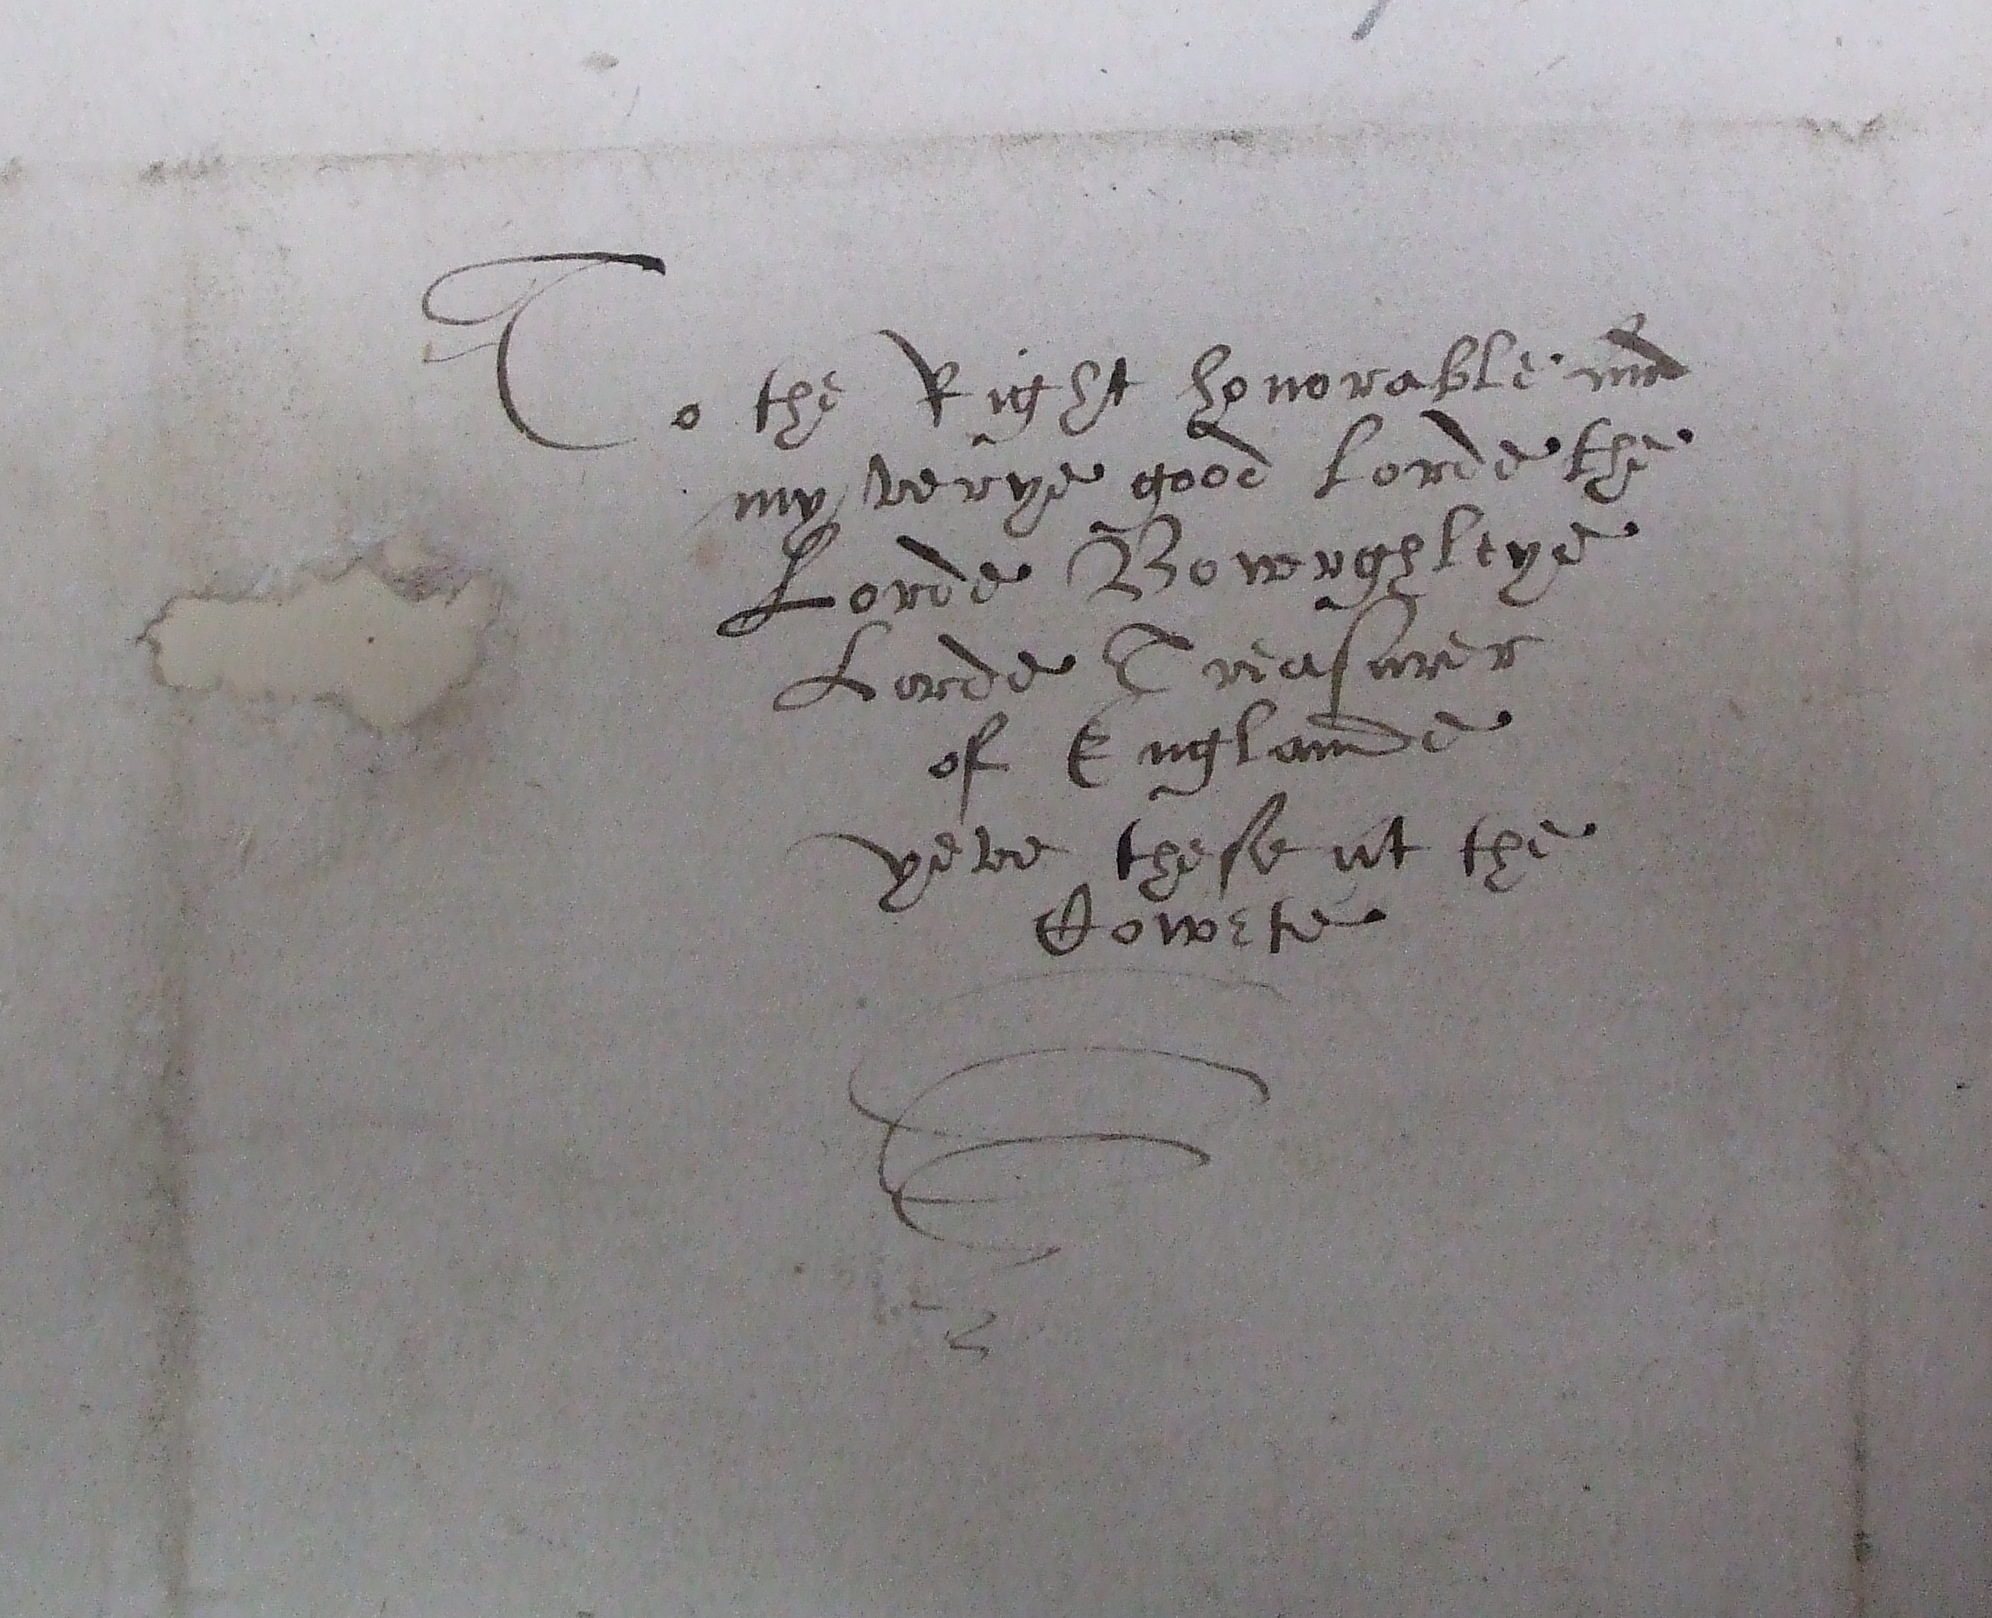 To the Right honorable and
my verye good Lorde the
Lorde Bowrghleye
Lorde Treasurer
of Englande
yeve these at the
Cowrte